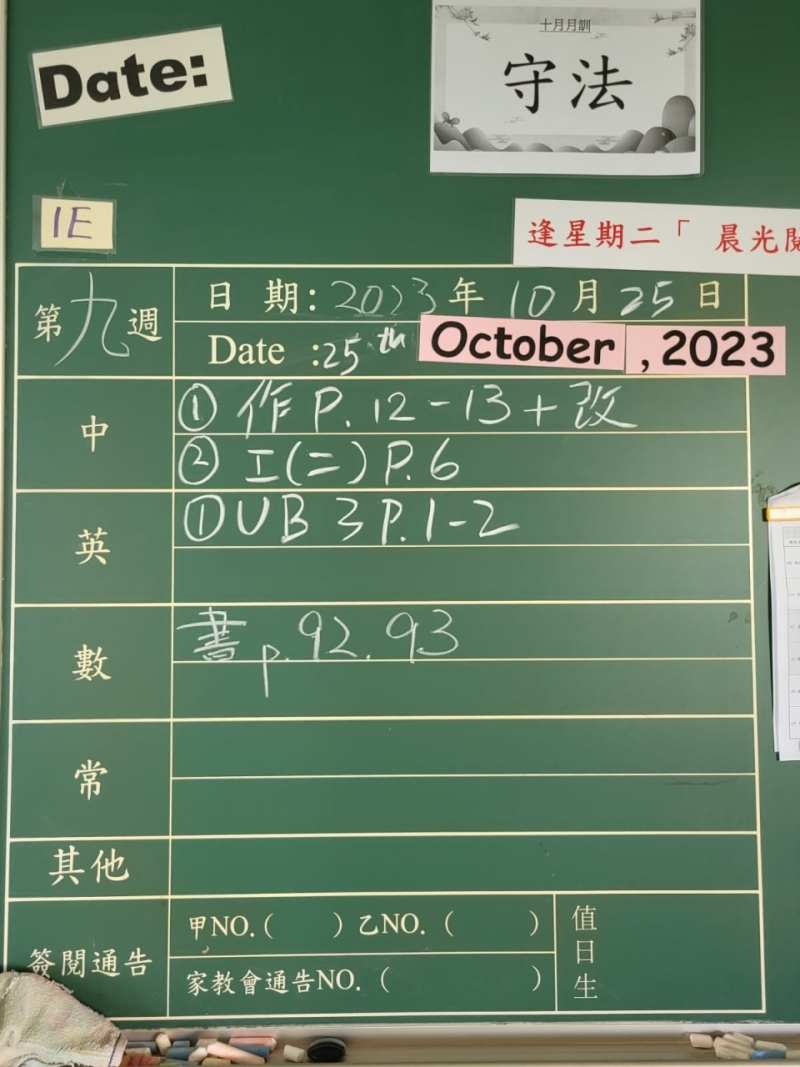 Date:
十月月訓
守法
1E
逢星期二「 晨光閱
第九週
日 期: 2023年 10月 25日
Date :25th October , 2023
中
① 作 P. 12 - 13 + 改
② 工(二) P. 6
英
① UB 3 P. 1 - 2
數
書 p. 92. 93
常
其他
簽閱通告
甲NO.( ) 乙NO. ( )
家教會通告NO. ( )
值日生